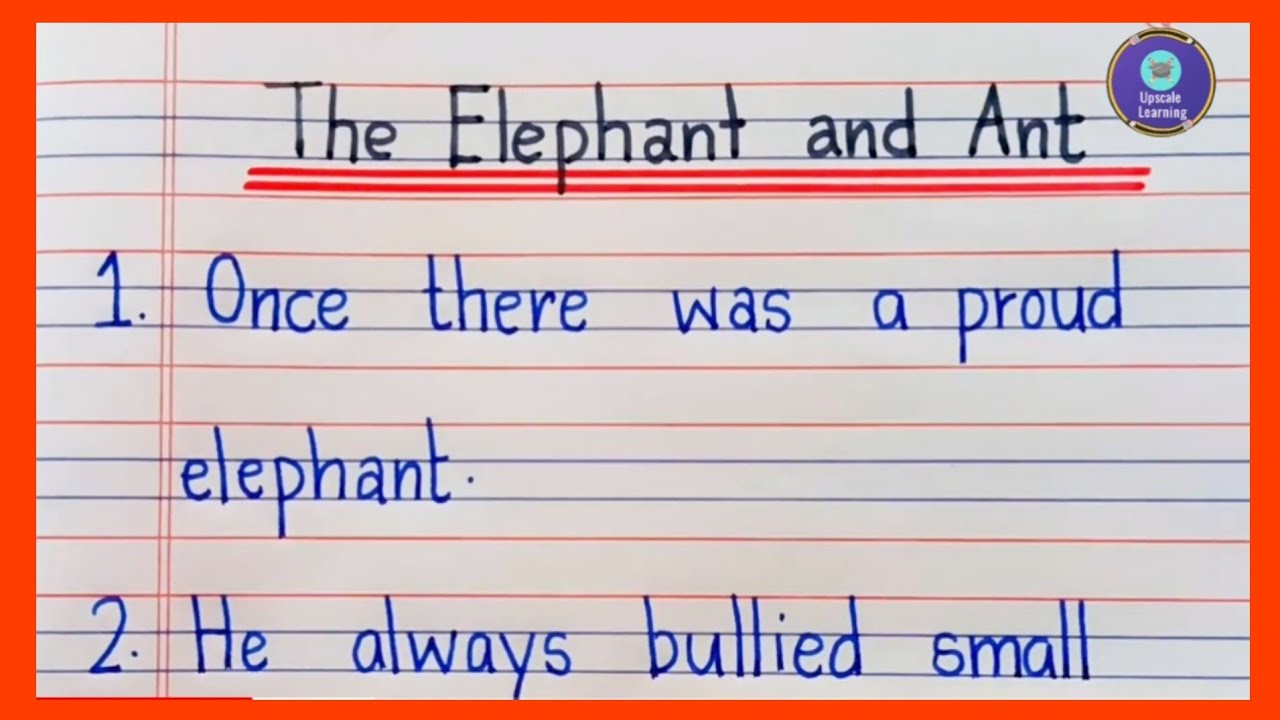 The Elephant and Ant
Upscale
Learning
1. Once there was a proud
elephant.
2. He always bullied small